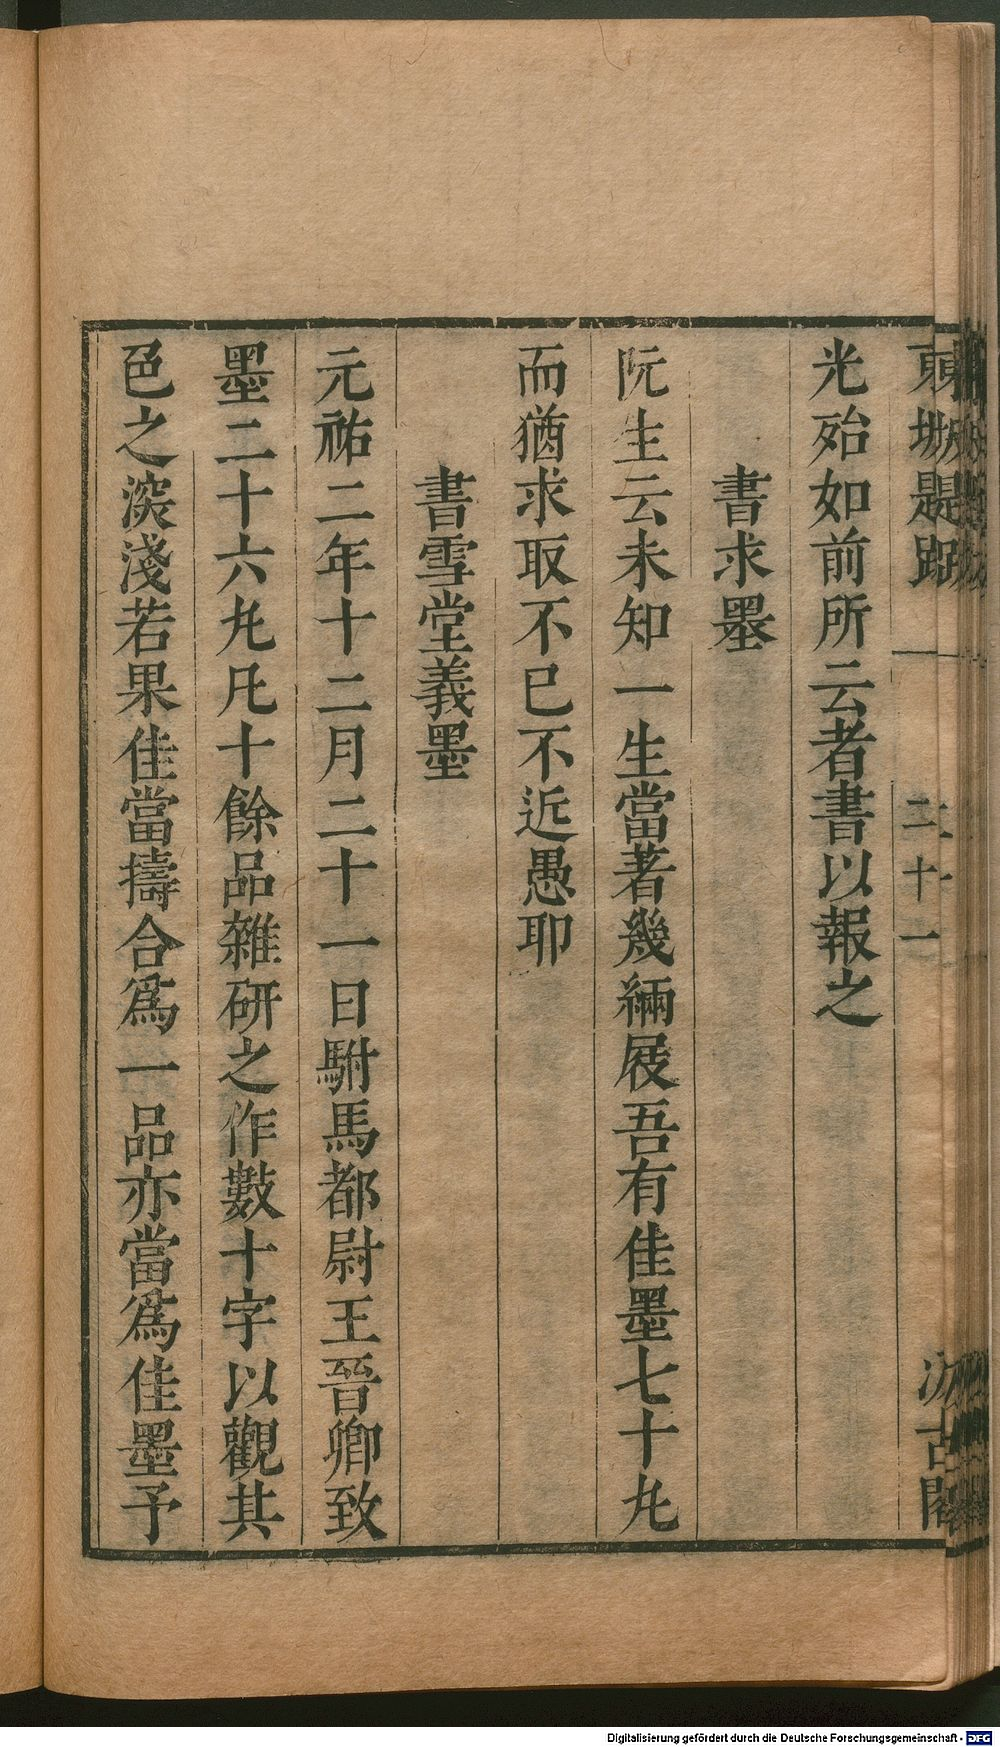 東坡題跋 二十一 汲古閣
光殆如前所云者書以報之
書求墨
阮生云未知一生當著幾緉屐吾有佳墨七十丸
而猶求取不已不近愚耶
書雪堂義墨
元祐二年十二月二十一日駙馬都尉王晉卿致
墨二十六丸凡十餘品雜研之作數十字以觀其
色之深淺若果佳當擣合爲一品亦當爲佳墨予
Digitalisierung gefördert durch die Deutsche Forschungsgemeinschaft - DFG